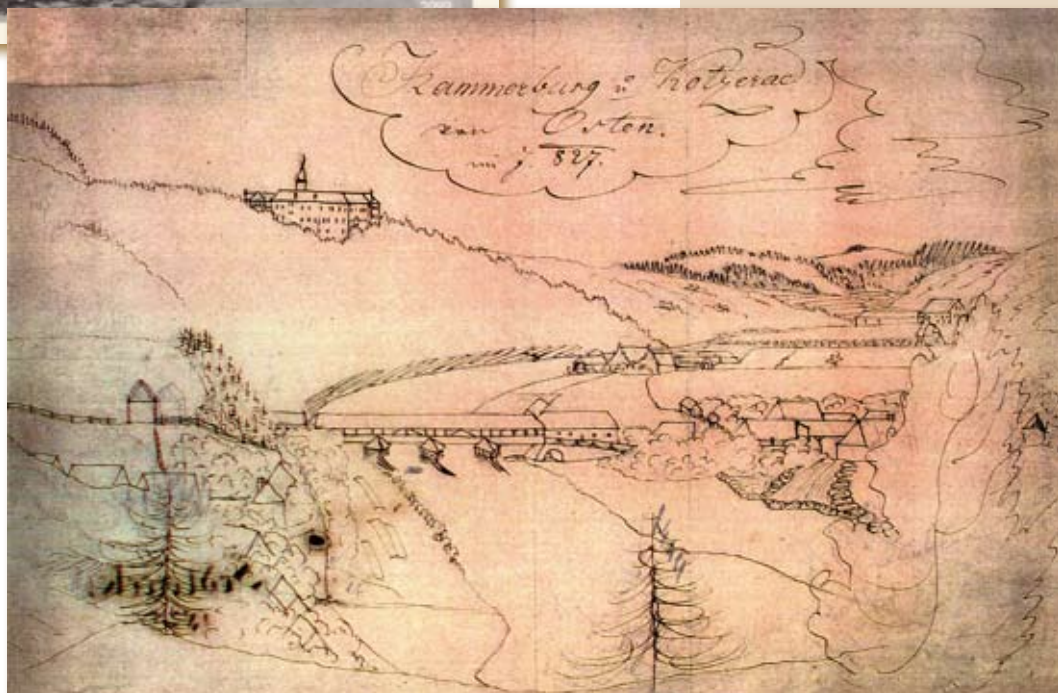 Kammerburg u Kotzerad
von Osten.
im J. 827.